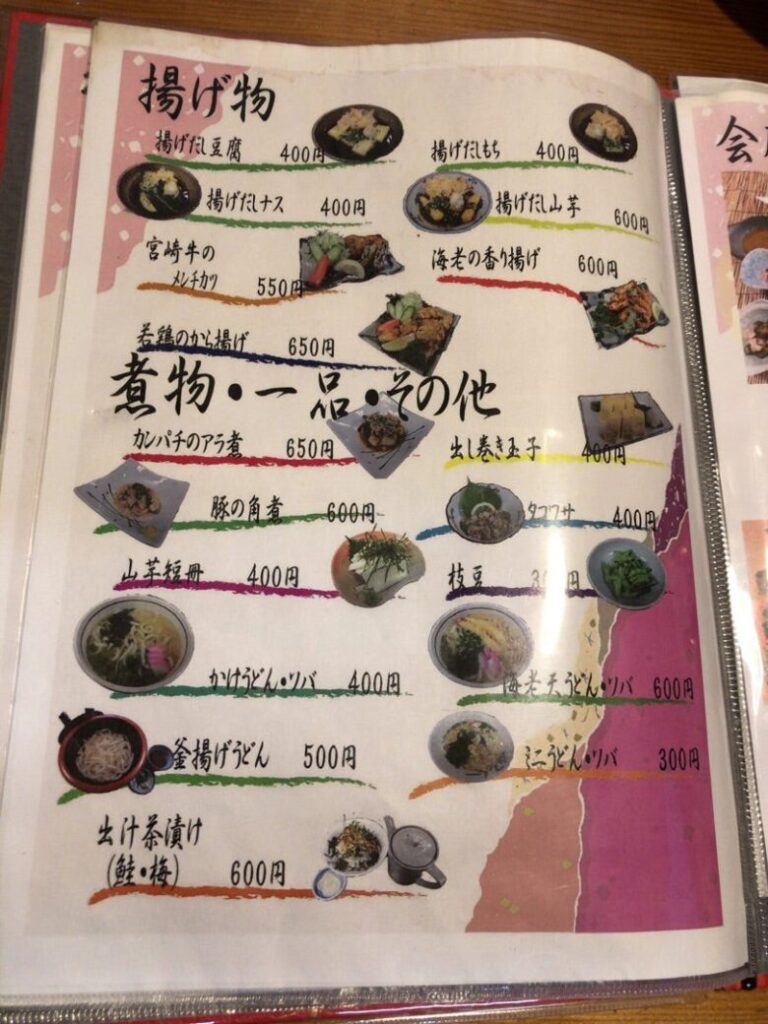 揚げ物
揚げだし豆腐 400円
揚げだしもち 400円
揚げだしナス 400円
揚げだし山芋 600円
宮崎牛の
メンチカツ 550円
海老の香り揚げ 600円
若鶏のから揚げ 650円
煮物・一品・その他
カンパチのアラ煮 650円
出し巻き玉子 400円
豚の角煮 600円
タコワサ 400円
山芋短冊 400円
枝豆 300円
かけうどん・ソバ 400円
海老天うどん・ソバ 600円
釜揚げうどん 500円
ミニうどん・ソバ 300円
出汁茶漬け
(鮭・梅) 600円
会